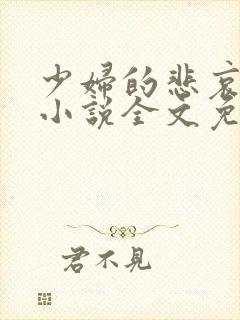 少婦的悲哀
小說全文免
君不見